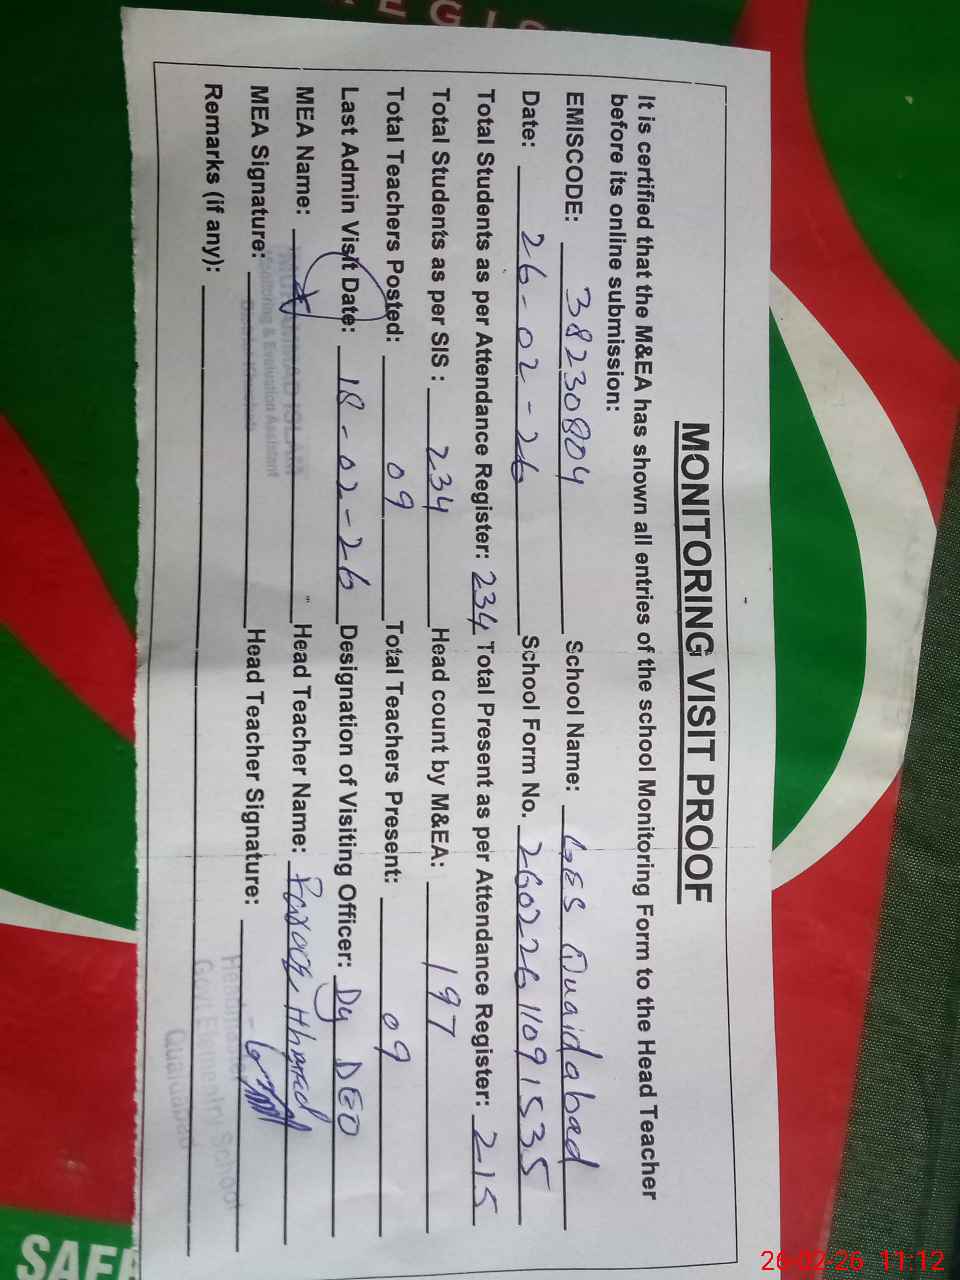 MONITORING VISIT PROOF
It is certified that the M&EA has shown all entries of the school Monitoring Form to the Head Teacher
before its online submission:
EMISCODE: 38230804 School Name: GES Quaidabad
Date: 26-02-26 School Form No. 26022611091535
Total Students as per Attendance Register: 234 Total Present as per Attendance Register: 215
Total Students as per SIS : 234 Head count by M&EA: 197
Total Teachers Posted: 09 Total Teachers Present: 09
Last Admin Visit Date: 18-02-26 Designation of Visiting Officer: Dy DEO
MEA Name: Head Teacher Name:
Monitoring & Evaluation Assistant
MEA Signature: Head Teacher Signature:
Headmaster
Remarks (if any):
Govt Elementry School
Quaidabad
SAFE
26-02-26 11:12